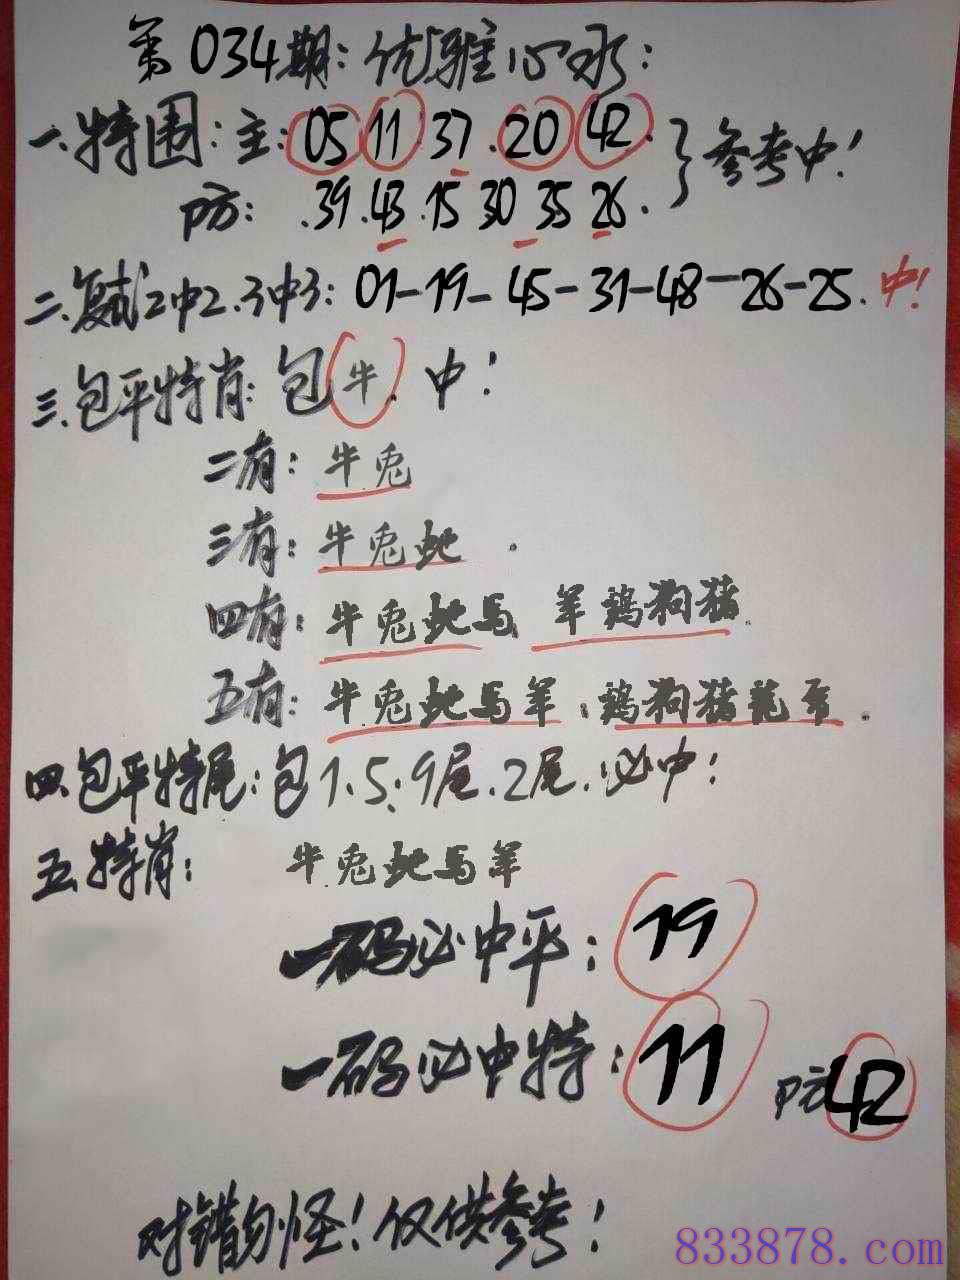 第034期：优雅心水：
一.特围：主：05 11 37.20 42.}参考中！
防：.39.43.15 30 35 26.
二.复式2中2.3中3：01-19-45-31-48-26-25.中！
三.包平特肖：包牛.中！
二有：牛兔
三有：牛兔蛇.
四有：牛兔蛇马 羊鸡狗猪.
五有：牛兔蛇马羊.鸡狗猪龙
四.包平特尾：包1.5.9尾.2尾.必中！
五.特肖：牛兔蛇马羊
一码必中平：19
一码必中特：11 防42
对错勿怪！仅供参考！
833878.com